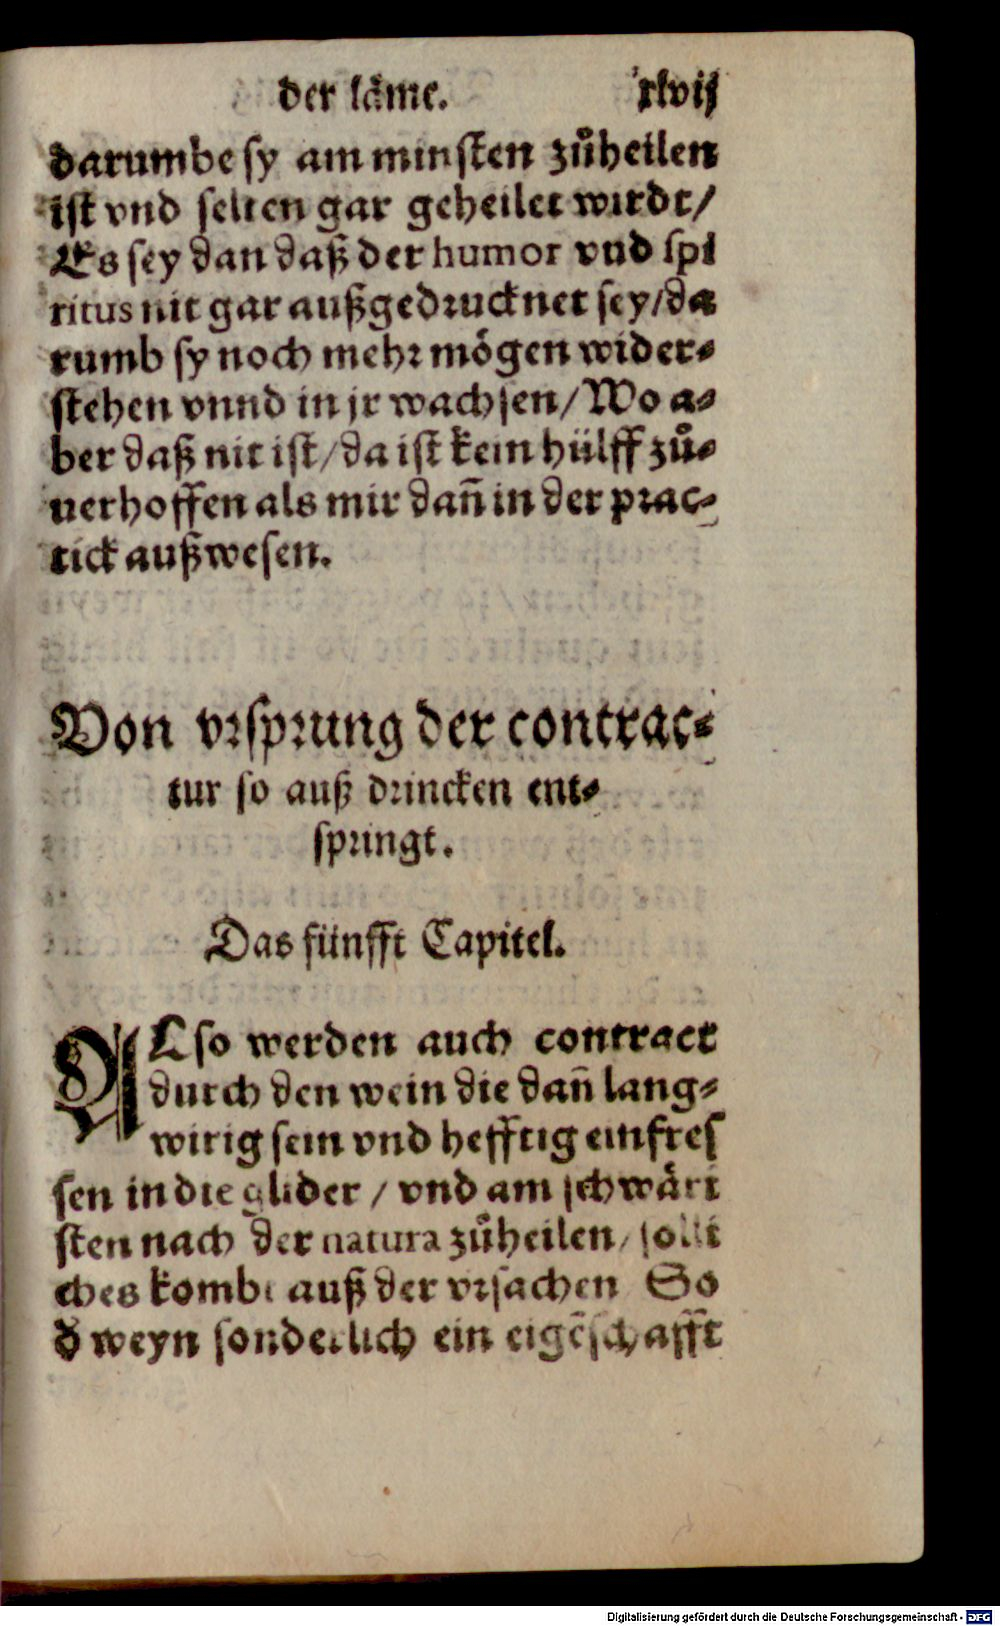 der läme. xlvij
darumbe sy am minsten zůheilen
ist vnd selten gar geheilet wirdt/
Es sey dan daß der humor vnd spi
ritus nit gar außgedrucknet sey/da
rumb sy noch mehr mögen wider⸗
stehen vnnd in jr wachsen/Wo a⸗
ber daß nit ist/da ist kein hülff zů⸗
uerhoffen als mir dañ in der prac⸗
tick außwesen.
Von vrsprung der contrac⸗
tur so auß drincken ent⸗
springt.
Das fünfft Capitel.
ALso werden auch contract
durch den wein die dañ lang⸗
wirig sein vnd hefftig einfres
sen in die glider / vnd am schwäri
sten nach der natura zůheilen/ solli
ches kombt auß der vrsachen So
d̕ weyn sonderlich ein eigẽschafft
Digitalisierung gefördert durch die Deutsche Forschungsgemeinschaft - DFG